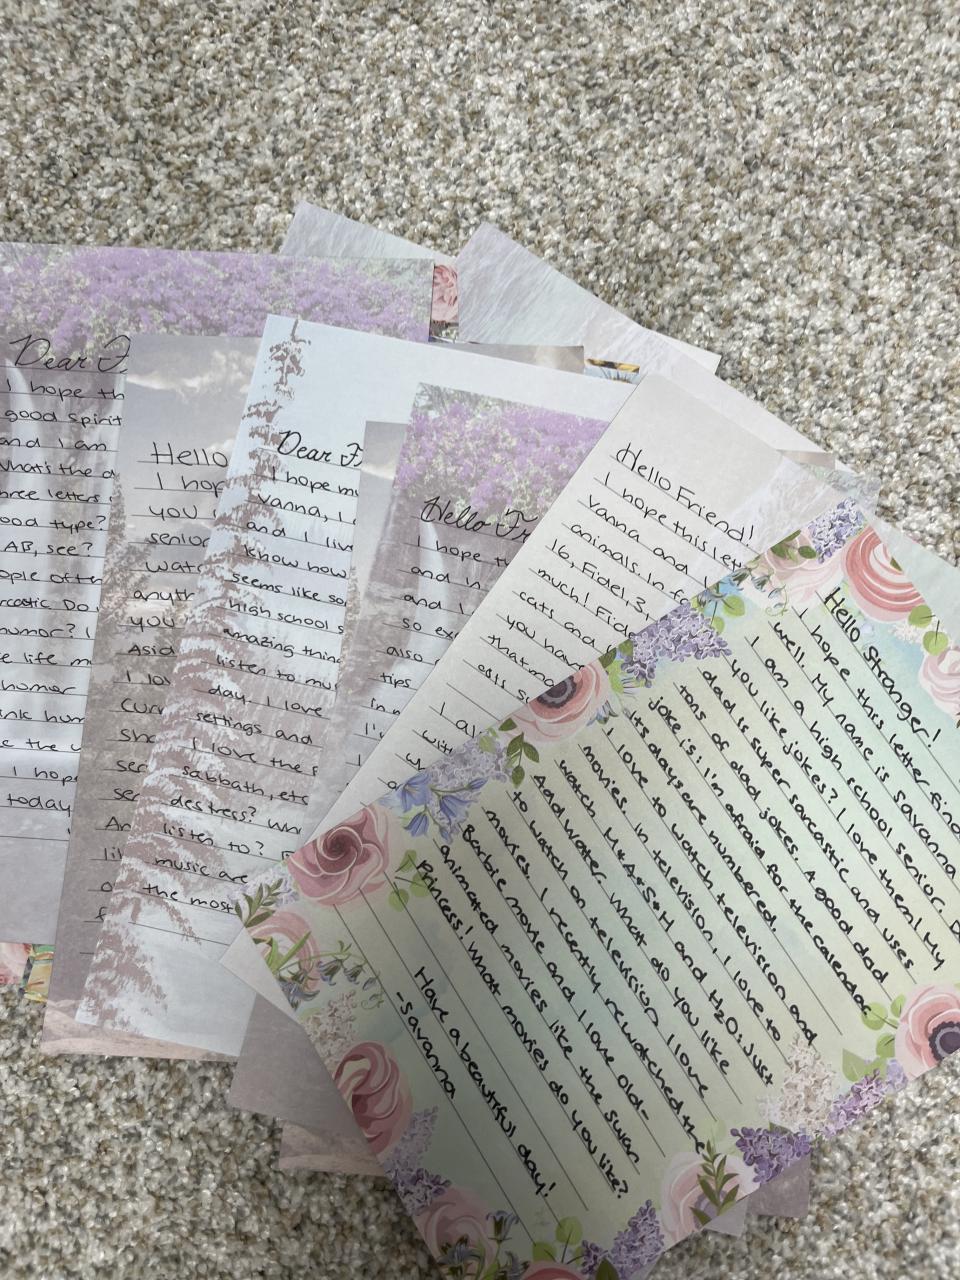 Dear
I hope th
good spirit
and I am
what's the d
three letters
ood type?
AB, see?
ople often
rcastic Do
humor? I
e life m
humor
ink hum
e the
I hope
today
Hello
I hop
you
senior
wat
anyth
you
Asid
I lov
Curr
She
sec
ser
An
lik
o
f
Dear
I hope my
Vanna, I
and I liv
know how
seems like so
high school s
amazing thin
listen to mu
day. I love
settings and
I love the
sabbath, etc
destress? Wh
listen to?
music are
the most
Hello Fr
I hope t
and h
and I
so ex
also
tips
in n
I'v
Hello Friend!
I hope this let
Vanna and I
animals. In fa
16, Fidel, 3,
much! Fide
cats and
you hav
that ma
cats s
I al
wit
Hello Stranger!
I hope this letter finds
well. My name is Savanna
I am a high school senior. D
you like jokes? I love them! My
dad is super sarcastic and uses
tons of dad jokes. A good dad
joke is: I'm afraid for the calendar
Its days are numbered.
I love to watch television and
movies. In television, I love to
watch M*A*S*H and H2O: Just
Add Water. What do you like
to watch on television? I love
movies. I recently rewatched the
Barbie movie and I love old-
animated movies like the Swan
Princess! What movies do you like?
Have a beautiful day!
-Savanna